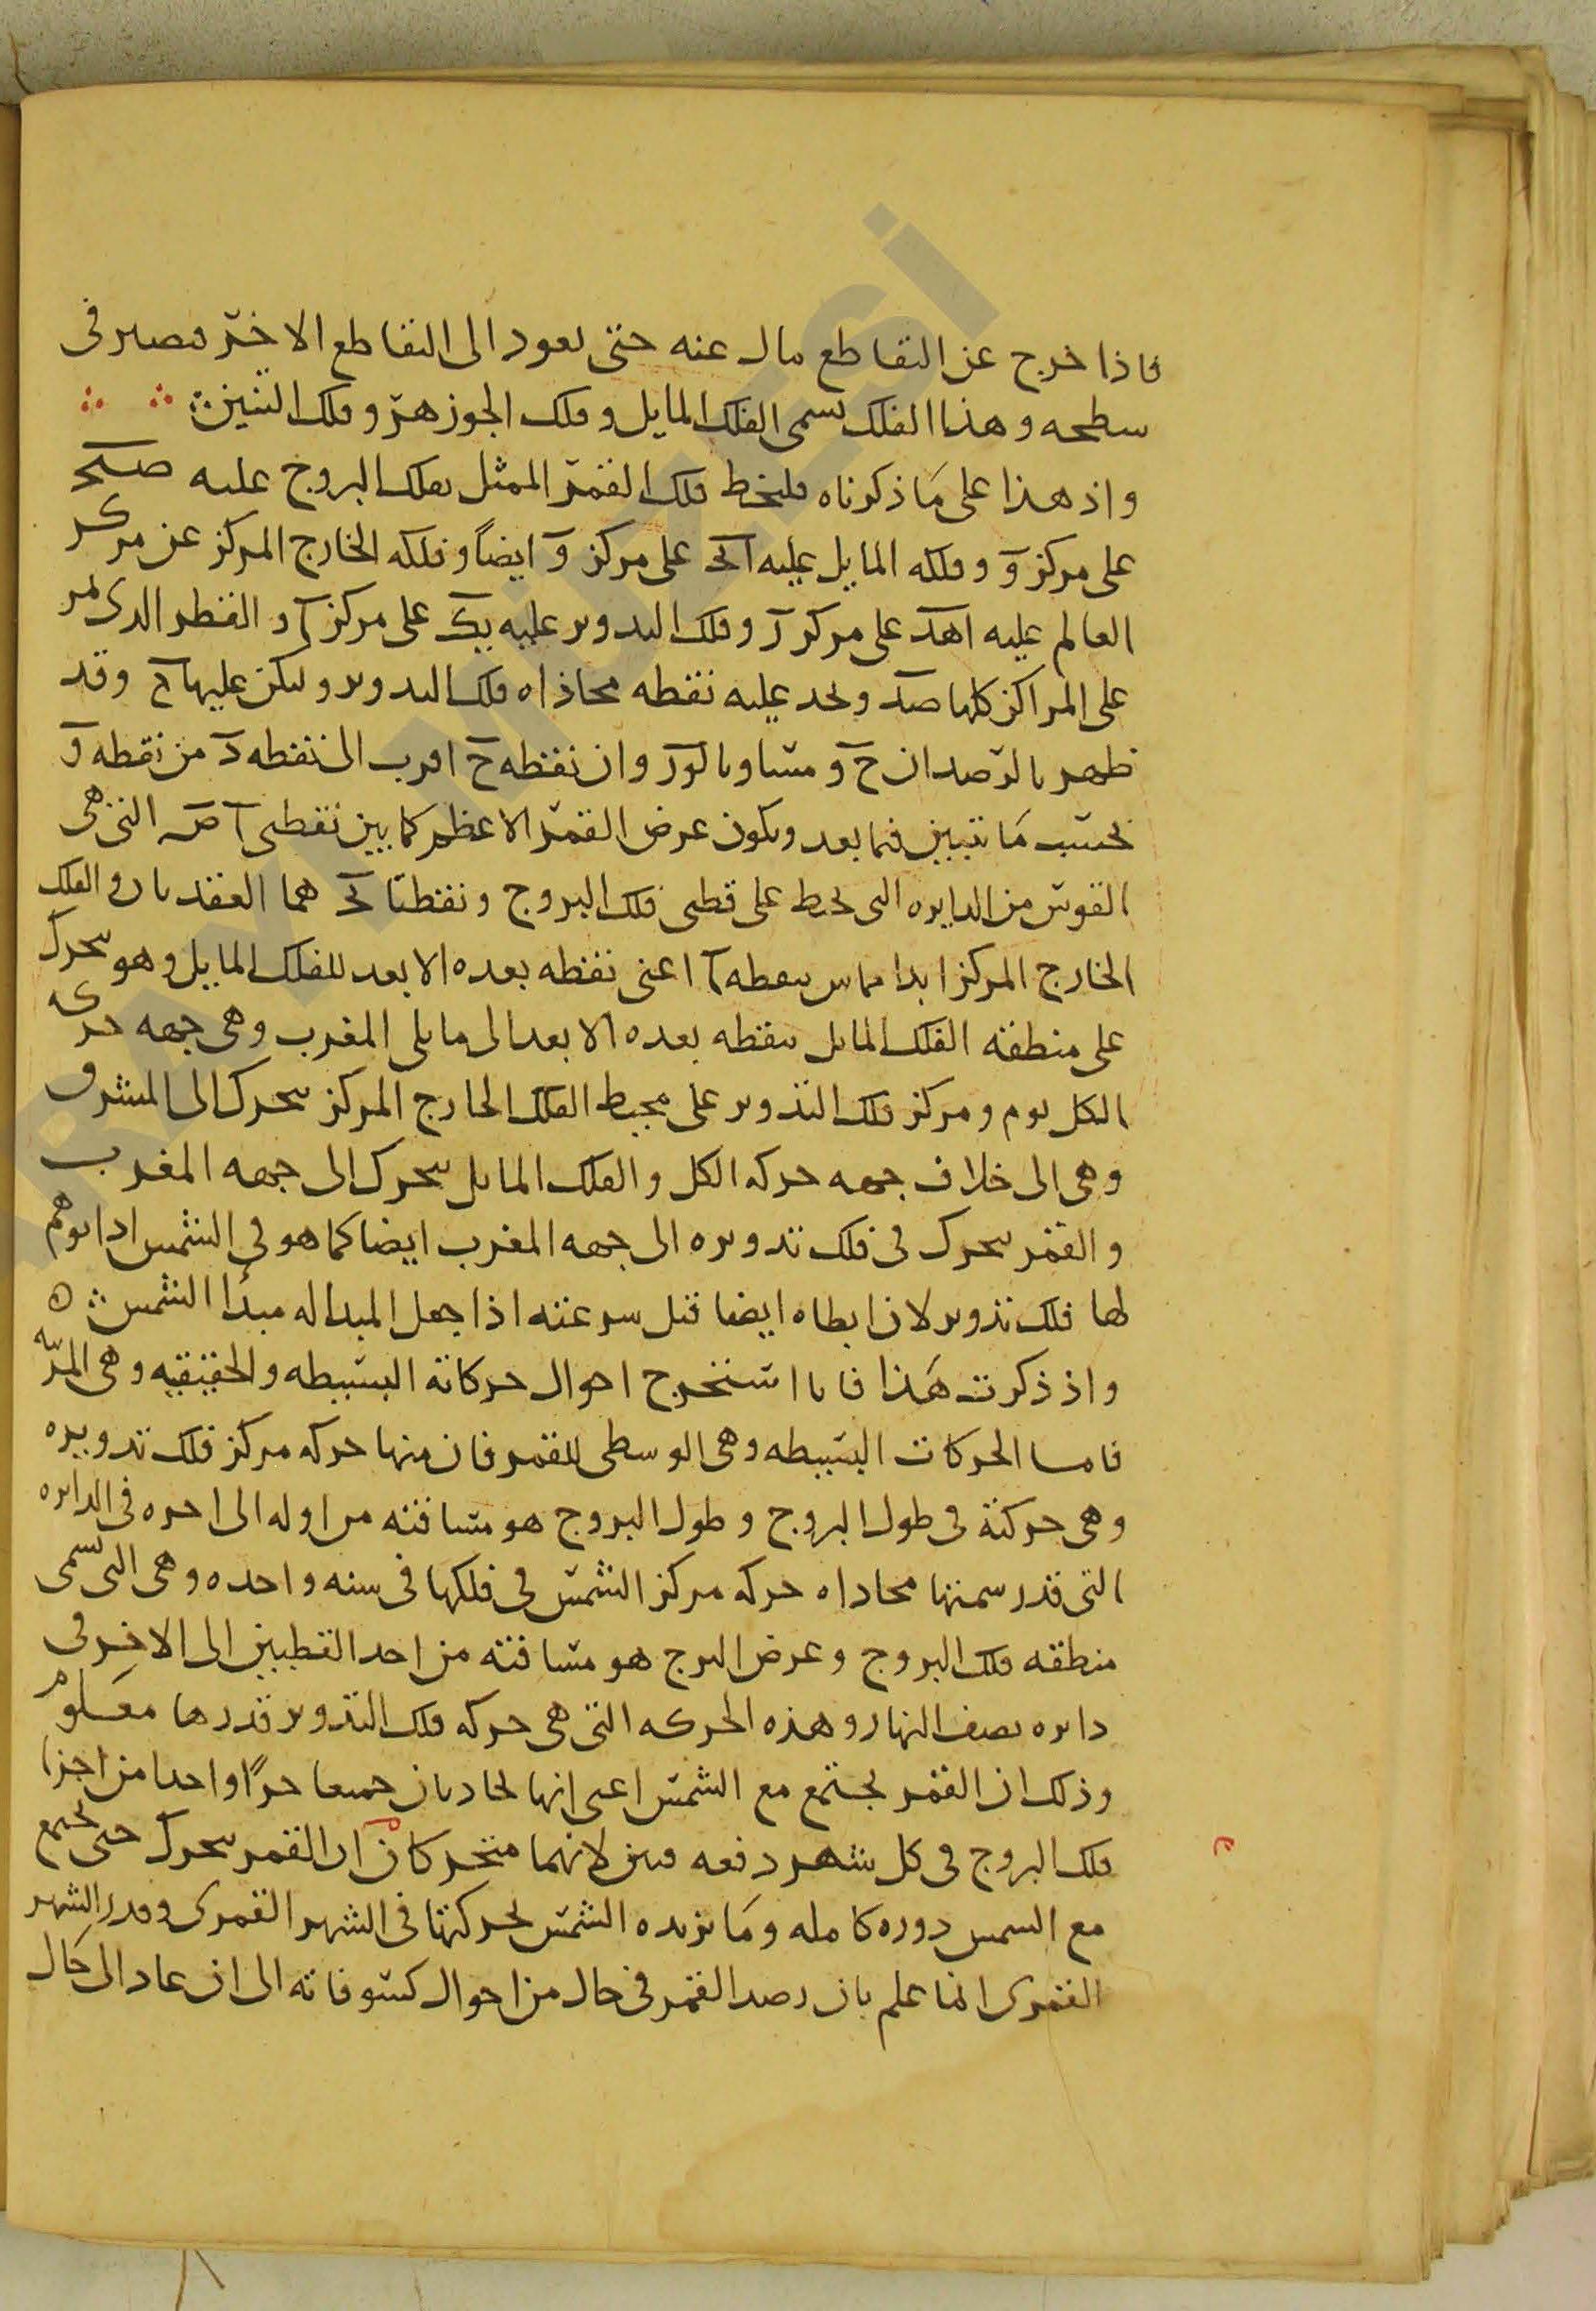 فاذا خرج عن التقاطع مال عنه حتى يعود الى التقاطع الاخر فيصير فى
سطحه وهذا الفلك يسمى الفلك المايل وفلك الجوزهر وفلك التنين
واذ هذا على ما ذكرناه فليخط فلك القمر الممثل بفلك البروج عليه
على مركز و وفلكه المايل عليه على مركز و ايضاً وفلكه الخارج المركز عن مركز
العالم عليه اهد على مركز ز وفلك التدوير عليه على مركز ا والقطر الذى يمر
على المراكز كلها ولحد عليه نقطه محاذاه فلك التدوير وليكن عليها ح وقد
ظهر بالرصد ان ح و مساو بالو ز وان نقطه ح اقرب الى نقطه د من نقطه و
بحسب ما تبين فيما بعد ويكون عرض القمر الاعظم كما بين نقطى ا ص التى هى
القوس من الدايره التى تخط على قطبى فلك البروج ونقطتا هما العقدتان والفلك
الخارج المركز ابدا يماس بنقطه ا اعنى نقطه بعده الابعد للفلك المايل وهو يتحرك
على منطقه الفلك المايل بنقطه بعده الابعد الى ما يلى المغرب وهى جهه حركه
الكل يوم ومركز فلك التدوير على محيط الفلك الخارج المركز يتحرك الى المشرق
وهى الى خلاف جهه حركه الكل والفلك المايل يتحرك الى جهه المغرب
والقمر يتحرك فى فلك تدويره الى جهه المغرب ايضا كما هو فى الشمس اذا توهم
لها فلك تدوير لان ابطاه ايضا قبل سرعته اذا جعل المبدا له مبدأ الشمس ه
واذ ذكرت هذا فانا استخرج احوال حركاته البسيطه والحقيقيه وهى المرئيه
فاما الحركات البسيطه وهى الوسطى للقمر فان منها حركه مركز فلك تدويره
وهى حركته فى طول البروج وطول البروج هو مسافته من اوله الى اخره فى الدايره
التى قد رسمتها محاذاه حركه مركز الشمس فى فلكها فى سنه واحده وهى التى تسمى
منطقه فلك البروج وعرض البرج هو مسافته من احد القطبين الى الاخر فى
دايره نصف النهار وهذه الحركه التى هى حركه فلك التدوير قدرها معلوم
وذلك ان القمر يجتمع مع الشمس اعنى انها يحاذيان جميعا جزًا واحدا من اجزا
فلك البروج فى كل شهر دفعه فبين لانهما متحركان ان القمر يتحرك حتى يجتمع
مع الشمس دوره كامله وما تزيده الشمس بحركتها فى الشهر القمرى وقدر الشهر
القمرى انما علم بان رصد القمر فى حال من احوال كسوفاته الى ان عاد الى حال